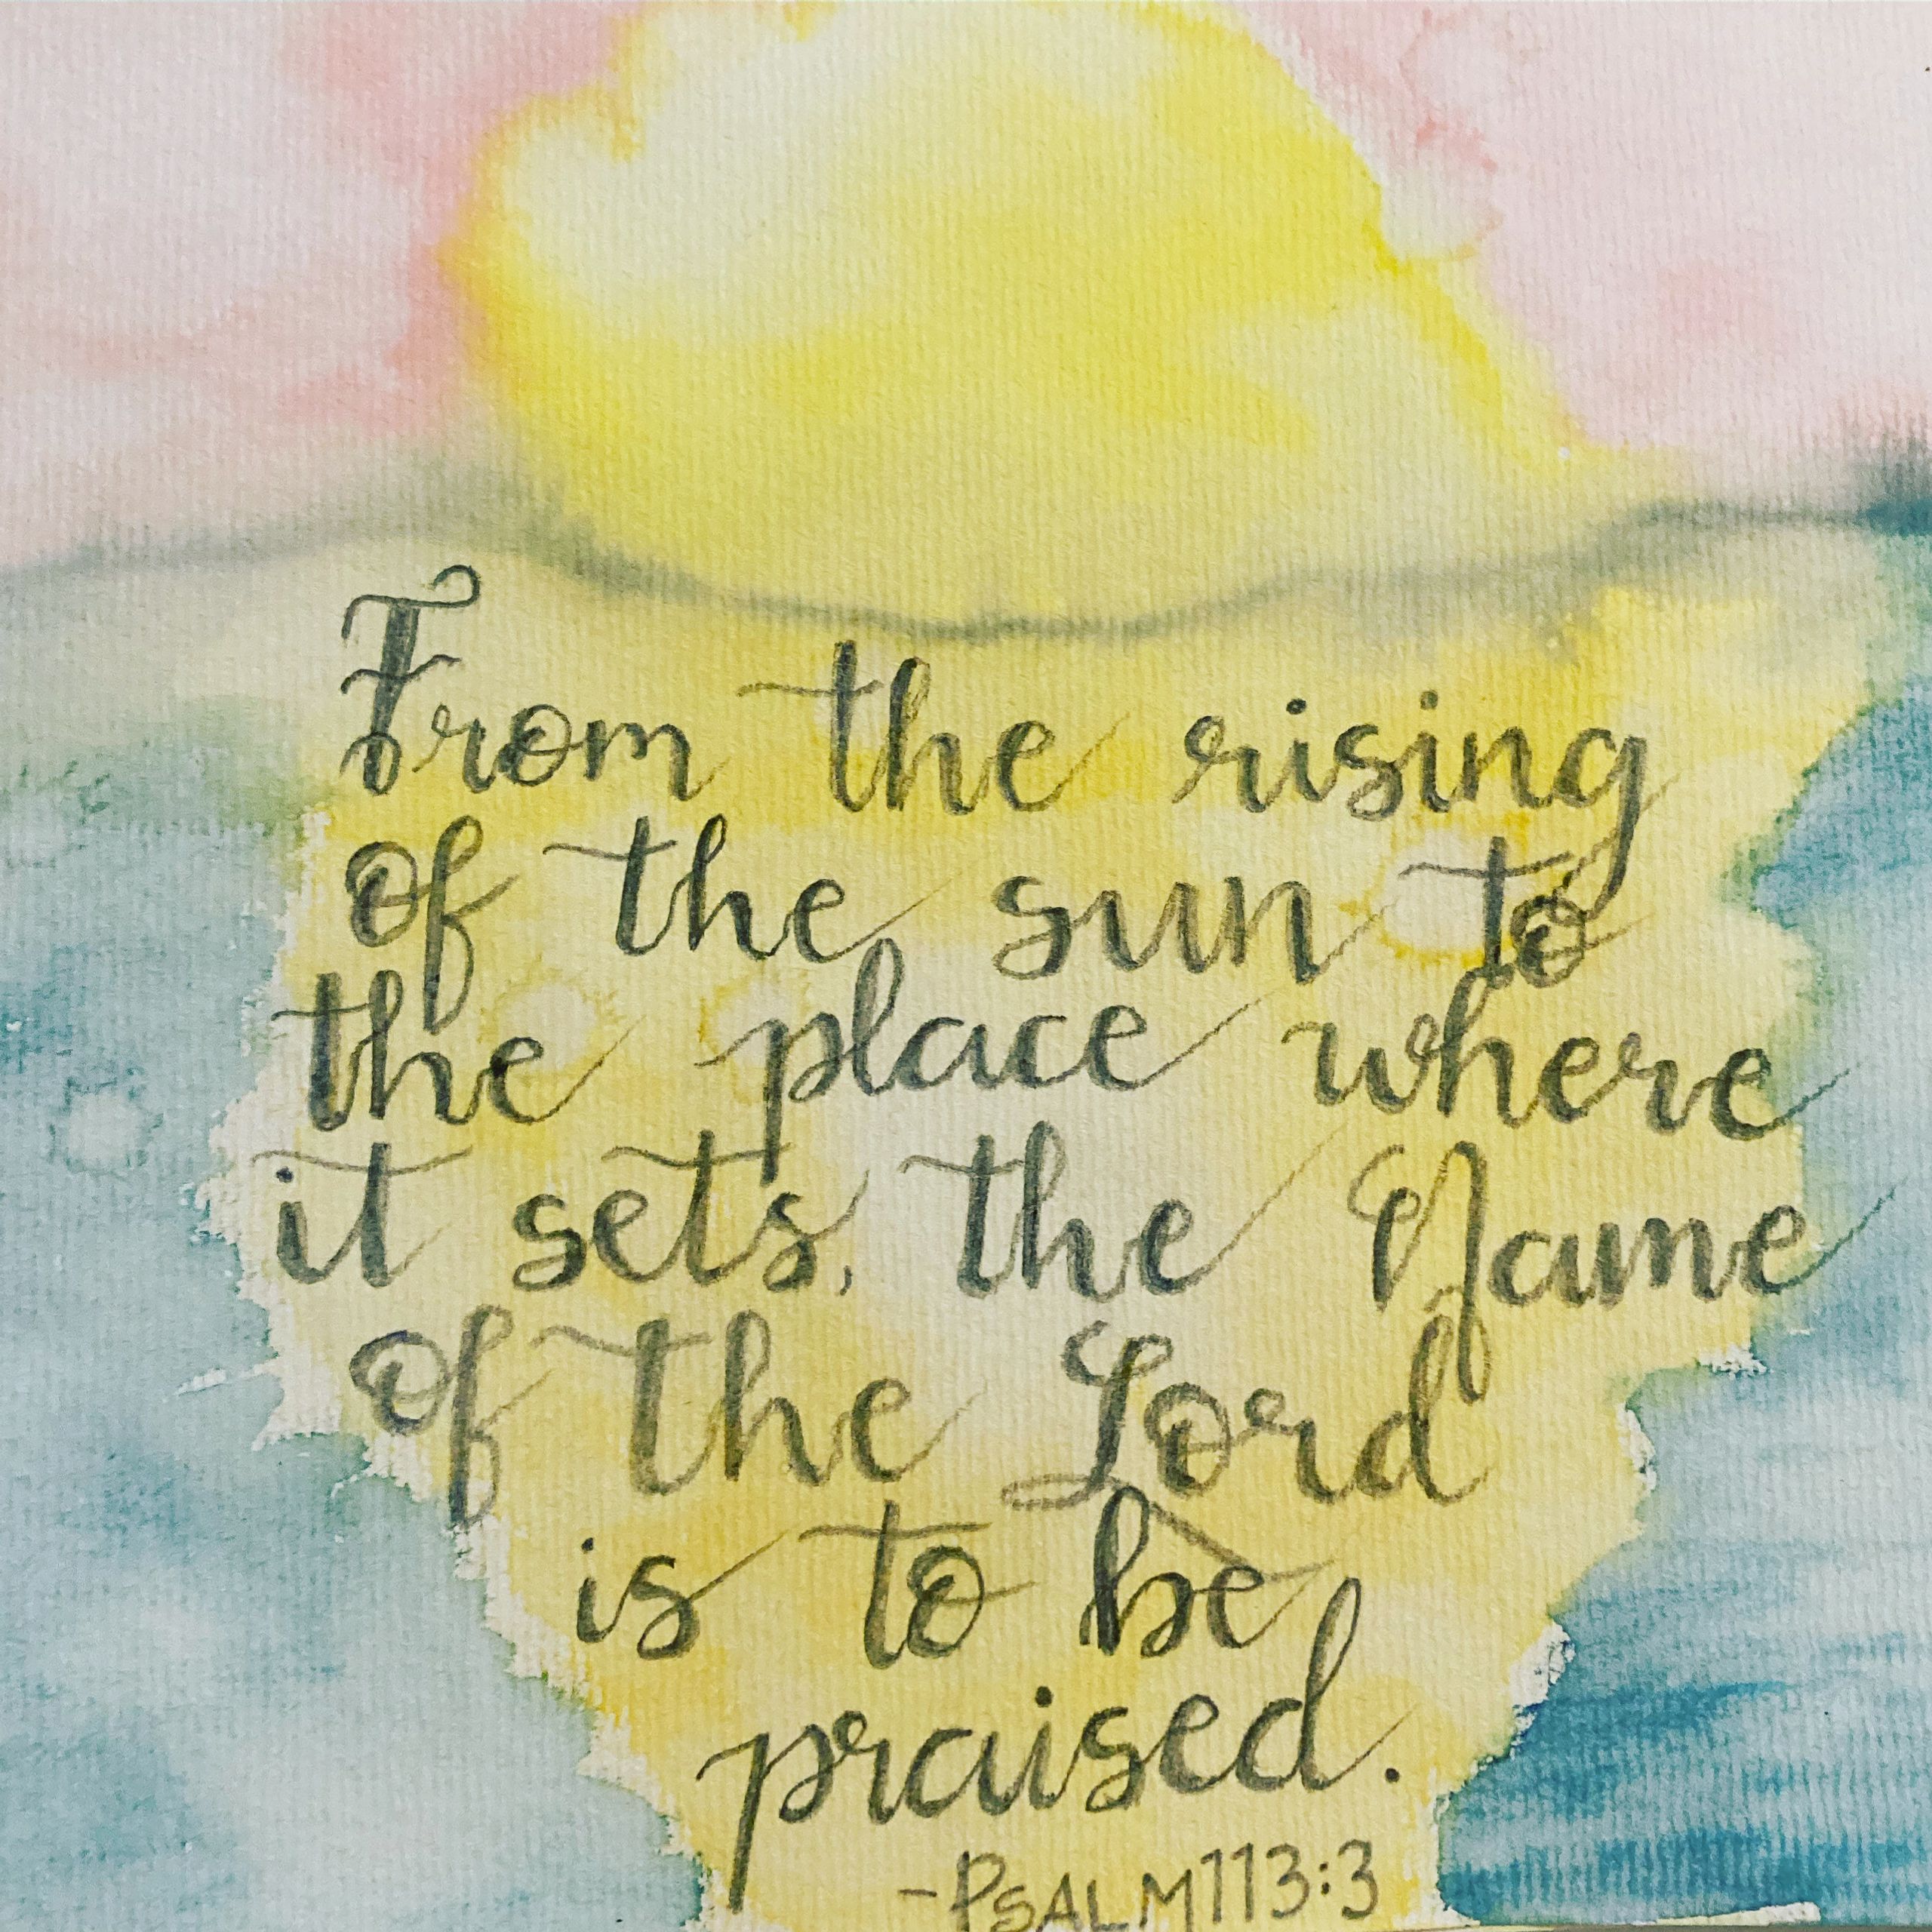 From the rising
of the sun to
the place where
it sets, the Name
of the Lord
is to be
praised.
-PSALM 113:3